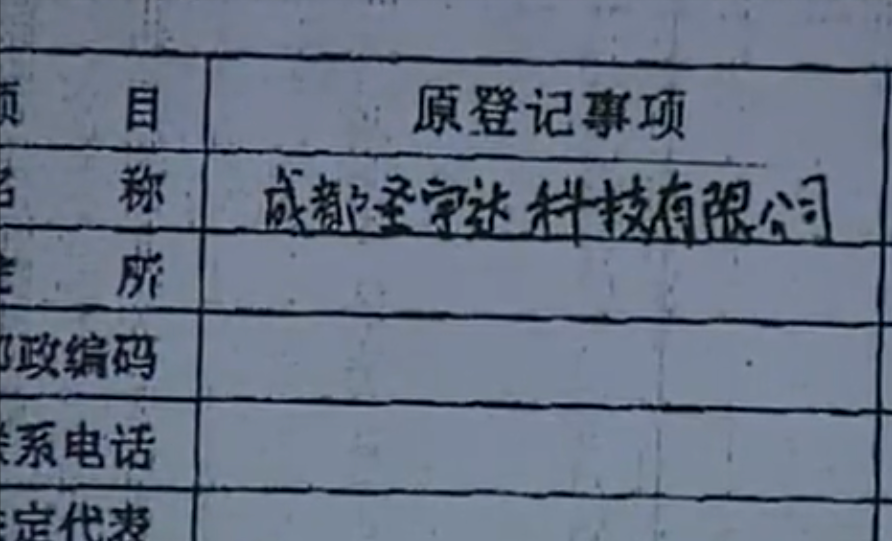 项 目 原登记事项
名 称 成都圣宇达科技有限公司
住 所
邮政编码
联系电话
法定代表